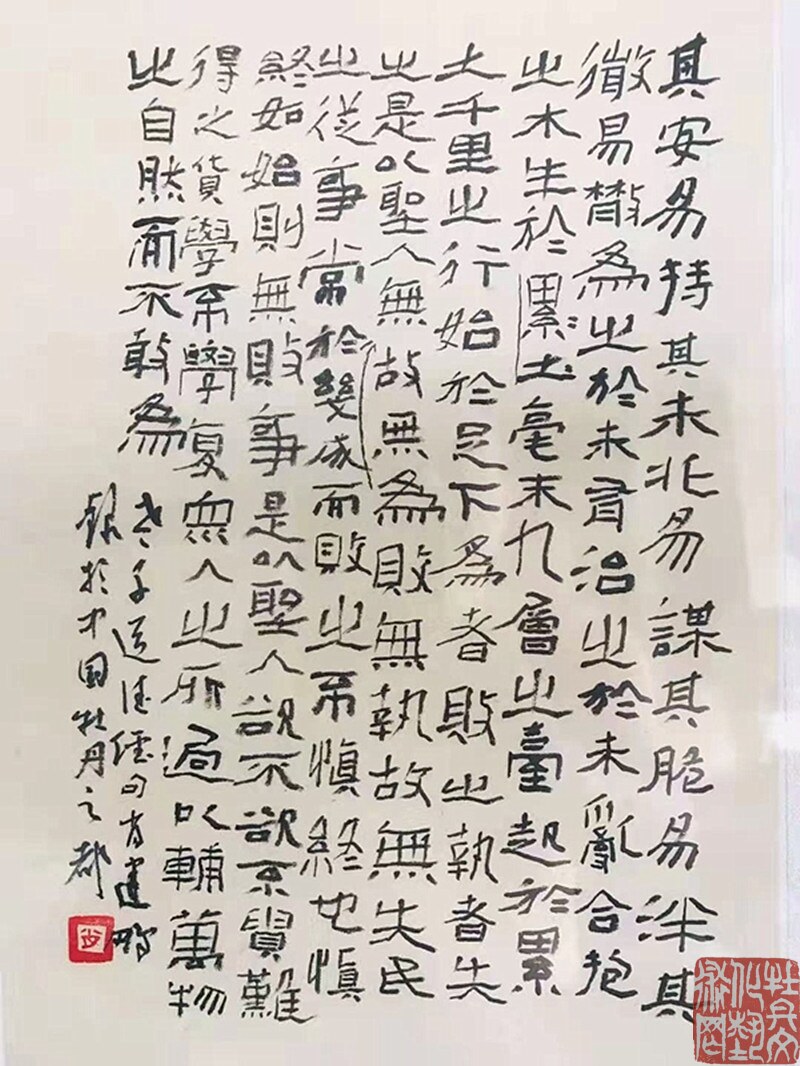 其安易持其未兆易謀其脆易泮其
微易散為之於未有治之於未亂合抱
之木生於累土毫末九層之臺起於累
土千里之行始於足下為者敗之執者失
之是以聖人無故無為敗無執故無失民
之從事常於幾成而敗之不慎終也慎
終如始則無敗事是以聖人欲不欲不貴難
得之貨學不學復眾人之所過以輔萬物
之自然而不敢為
老子道德經句建鵬
錄於中国牡丹之都